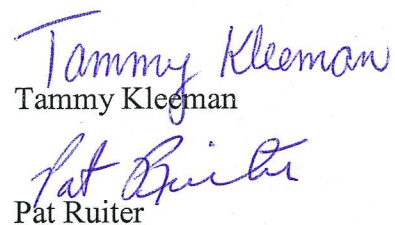 Tammy Kleeman
Tammy Kleeman
Pat Ruiter
Pat Ruiter